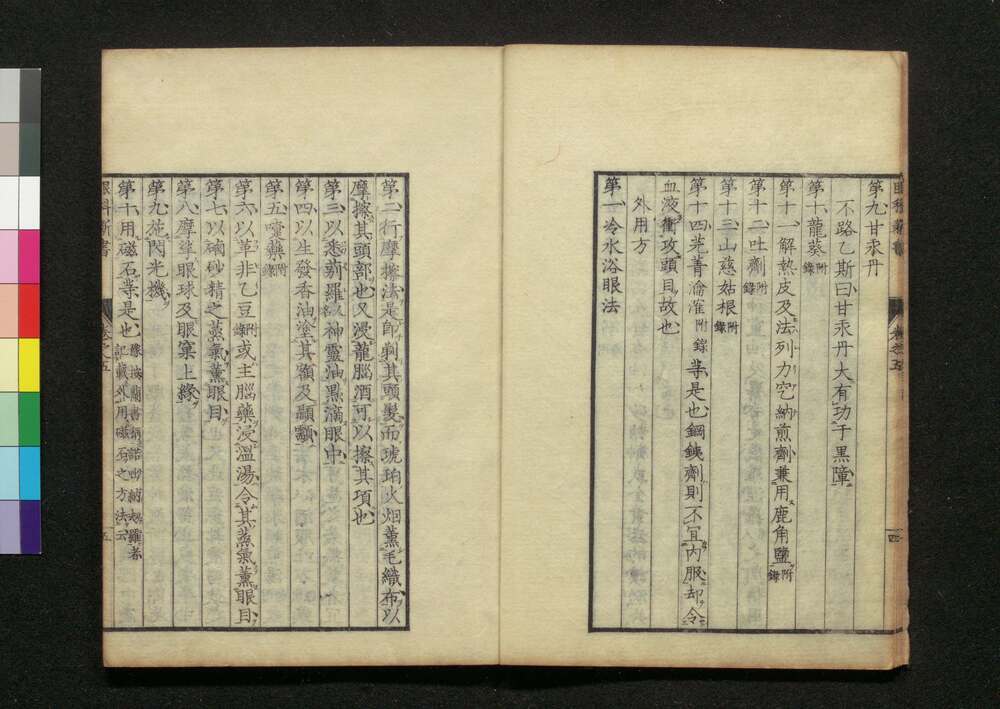 眼科新書
卷之五
四
第九甘汞丹
不路乙斯曰甘汞丹大有功于黒障
第十龍葵附錄
第十一解熱皮及法列力窊納煎劑兼用鹿角鹽附錄
第十二吐劑附錄
第十三山慈姑根附錄
第十四芫菁瀹灌附錄等是也鋼鐵劑則不宜内服却令
血液衝攻頭目故也
外用方
第一冷水浴眼法
第二行摩擦法是卽剃其頭髮而琥珀火烟薫毛織布以
摩擦其頭部也又浸龍腦酒可以擦其項也
第三以悉蒻羅以神靈油㸃滴眼中
第四以生發香油塗其額及顳顬
第五嚏藥附錄
第六以革非乙豆附錄或主腦藥浸溫湯令其蒸氣薫眼目
第七以硇砂精之蒸氣薫眼目
第八摩擦眼球及眼窠上緣
第九施閃光機
第十用磁石等是也
記載外用磁石之方法云
眼科新書
卷之五
五